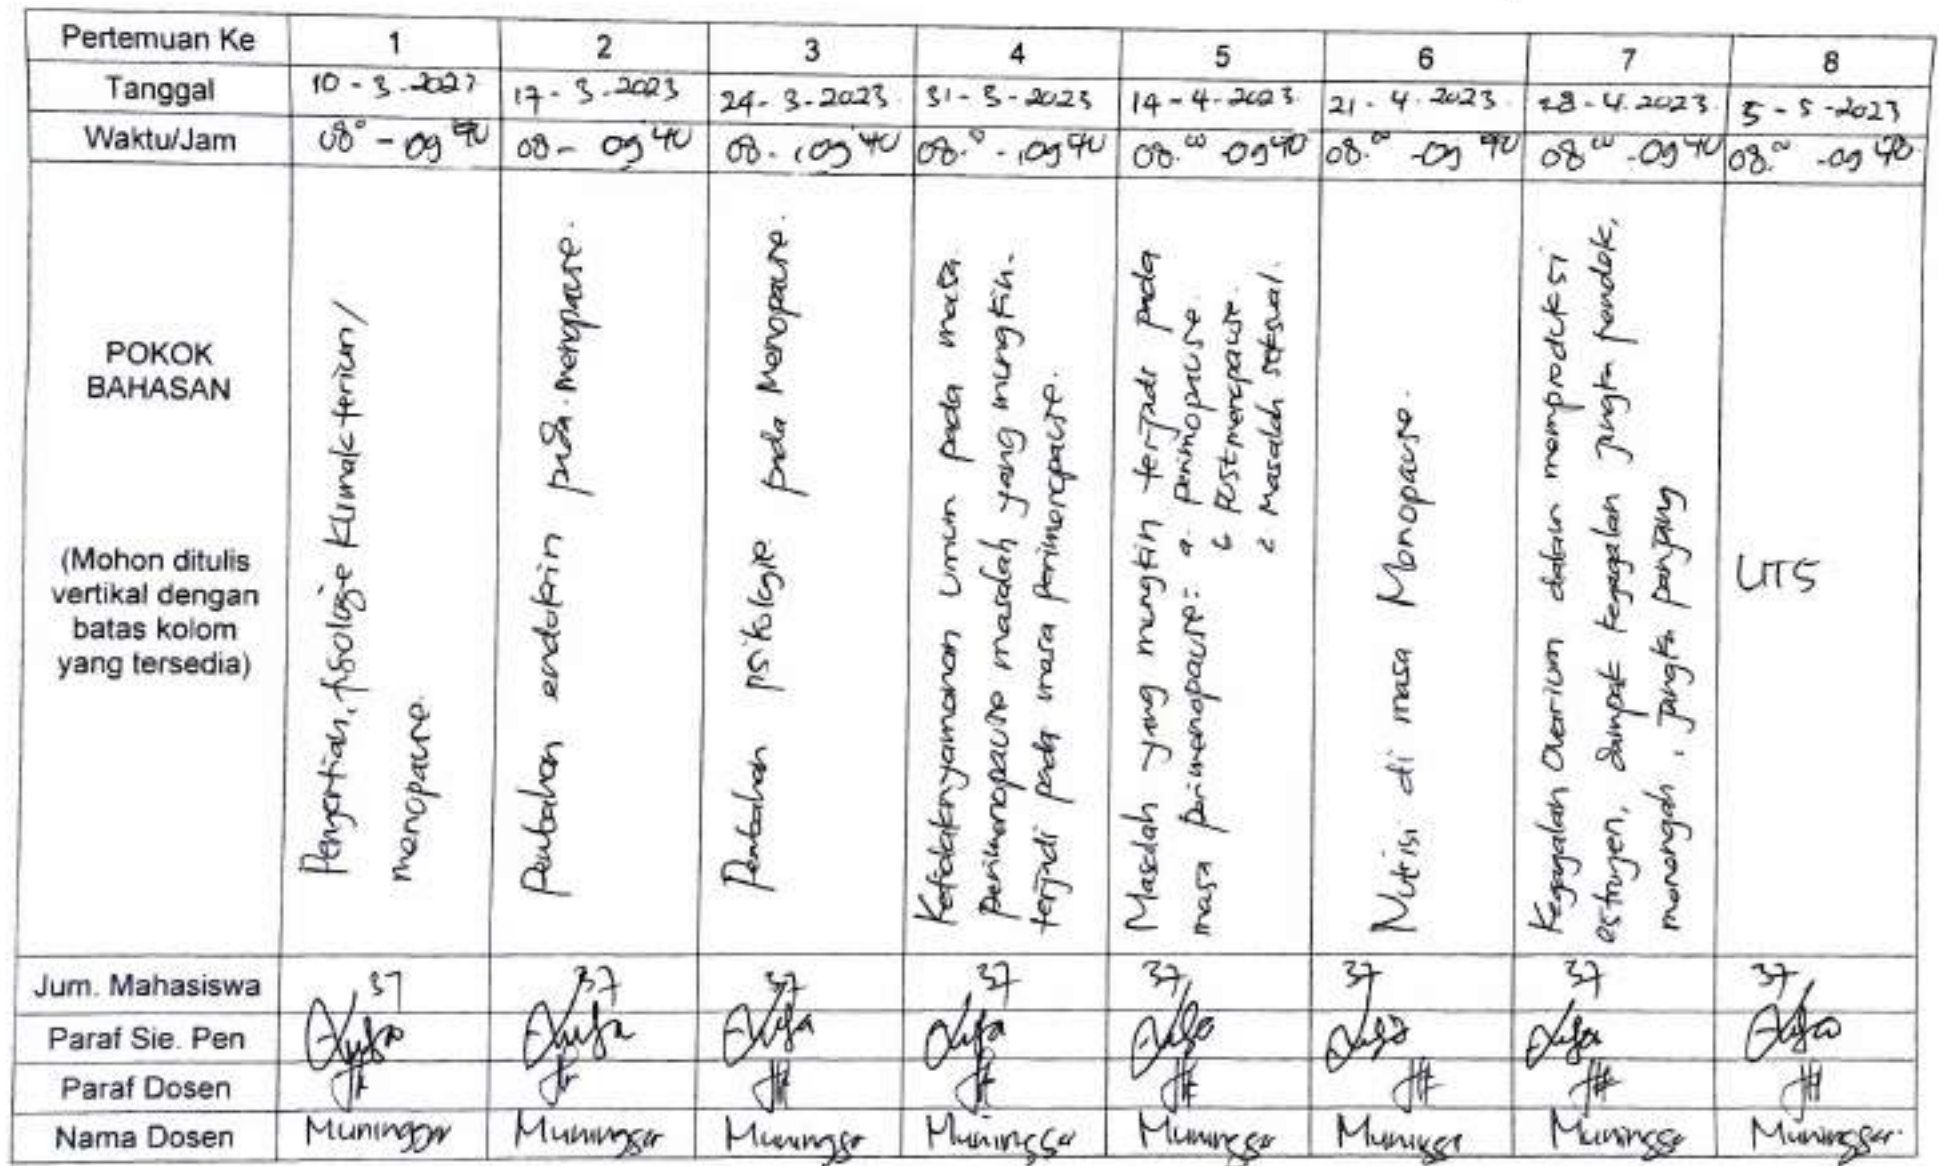 Pertemuan Ke 1 2 3 4 5 6 7 8
Tanggal 10 - 3 - 2023 17 - 3 - 2023 24 - 3 - 2023 31 - 3 - 2023 14 - 4 - 2023 21 - 4 - 2023 28 - 4 - 2023 5 - 5 - 2023
Waktu/Jam 08.º - 09 40 08 - 09 40 08. - 09 40 08.º - 09 40 08.00 - 09 40 08.00 - 09 40 08 00 - 09 40 08.00 - 09 40
POKOK
BAHASAN
(Mohon ditulis
vertikal dengan
batas kolom
yang tersedia)
Pengertian, fisologie Klimakterium/
menopause.
Perubahan endokrin pada menopause.
Perubahan psikologie pada Menopause.
Ketidaknyamanan umum pada masa
perimenopause masalah yang mungkin
terjadi pada masa perimenopause.
Masalah yang mungkin terjadi pada
masa perimenopause: a. perimopause
b postmenopause.
c Masalah seksual.
Nutrisi di masa Monopause.
Kegagalan Ovarium dalam memproduksi
estrogen, dampak kegagalan jangka pendek,
menengah, jangka panjang
UTS
Jum. Mahasiswa 37 37 37 37 37 37 37 37
Paraf Sie. Pen
Paraf Dosen
Nama Dosen Muninggar Muninggar Muninggar Muninggar Muninggar Muninggar Muninggar Muninggar